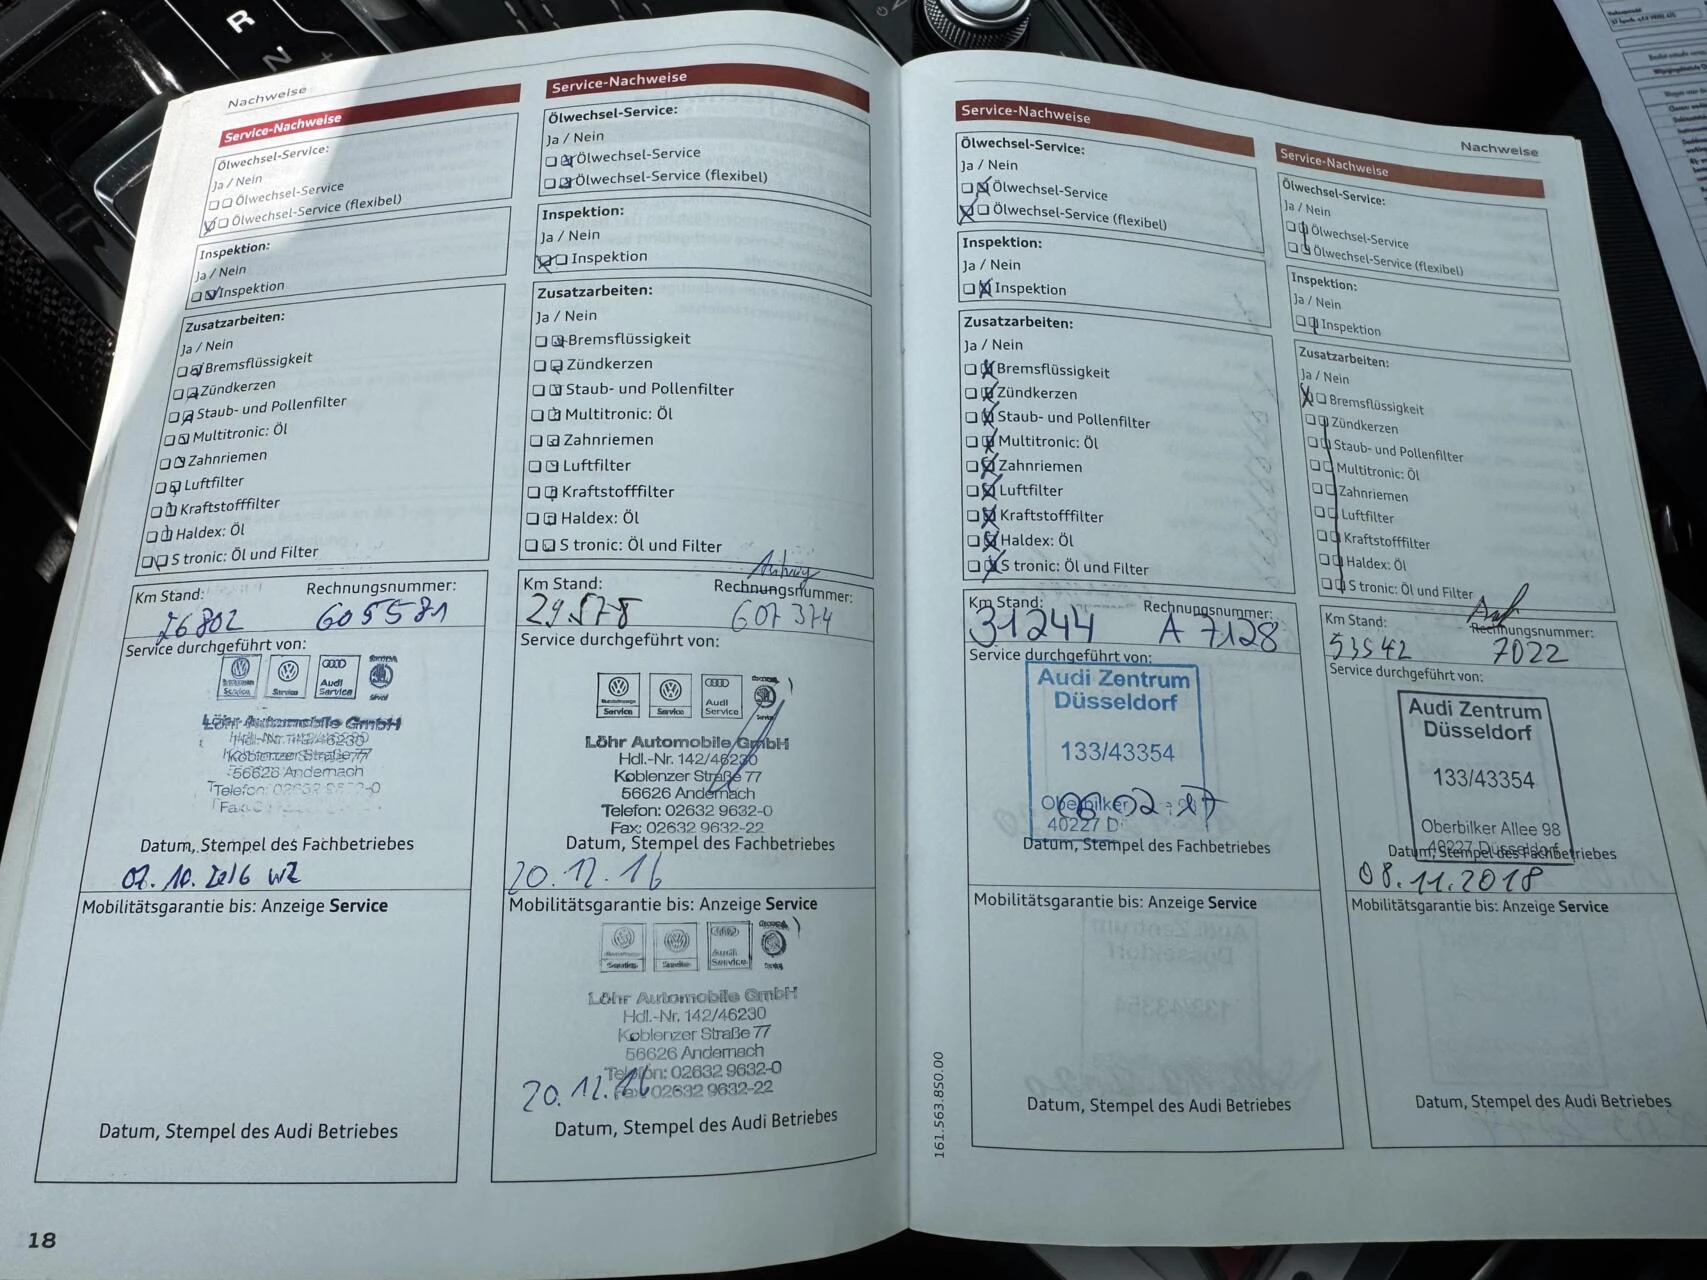 Nachweise
Service-Nachweise
Ölwechsel-Service:
Ja / Nein
Ölwechsel-Service
Ölwechsel-Service (flexibel)
Inspektion:
Ja / Nein
Inspektion
Zusatzarbeiten:
Ja / Nein
Bremsflüssigkeit
Zündkerzen
Staub- und Pollenfilter
Multitronic: Öl
Zahnriemen
Luftfilter
Kraftstofffilter
Haldex: Öl
S tronic: Öl und Filter
Km Stand: Rechnungsnummer:
26802 605581
Service durchgeführt von:
Service
Service
Audi
Service
Löhr Automobile GmbH
Hdl.-Nr. 142/46230
Koblenzer Straße 77
56626 Andernach
Telefon: 02632 9632-0
Datum, Stempel des Fachbetriebes
07.10.2016 WZ
Mobilitätsgarantie bis: Anzeige Service
Datum, Stempel des Audi Betriebes
18
Service-Nachweise
Ölwechsel-Service:
Ja / Nein
Ölwechsel-Service
Ölwechsel-Service (flexibel)
Inspektion:
Ja / Nein
Inspektion
Zusatzarbeiten:
Ja / Nein
Bremsflüssigkeit
Zündkerzen
Staub- und Pollenfilter
Multitronic: Öl
Zahnriemen
Luftfilter
Kraftstofffilter
Haldex: Öl
S tronic: Öl und Filter
Km Stand: Rechnungsnummer:
29578 607374
Service durchgeführt von:
Service
Service
Audi
Service
Löhr Automobile GmbH
Hdl.-Nr. 142/46230
Koblenzer Straße 77
56626 Andernach
Telefon: 02632 9632-0
Fax: 02632 9632-22
Datum, Stempel des Fachbetriebes
20.12.16
Mobilitätsgarantie bis: Anzeige Service
Service
Service
Audi
Service
Löhr Automobile GmbH
Hdl.-Nr. 142/46230
Koblenzer Straße 77
56626 Andernach
Telefon: 02632 9632-0
Fax: 02632 9632-22
20.12.16
Datum, Stempel des Audi Betriebes
Service-Nachweise
Ölwechsel-Service:
Ja / Nein
Ölwechsel-Service
Ölwechsel-Service (flexibel)
Inspektion:
Ja / Nein
Inspektion
Zusatzarbeiten:
Ja / Nein
Bremsflüssigkeit
Zündkerzen
Staub- und Pollenfilter
Multitronic: Öl
Zahnriemen
Luftfilter
Kraftstofffilter
Haldex: Öl
S tronic: Öl und Filter
Km Stand: Rechnungsnummer:
31244 A 7128
Service durchgeführt von:
Audi Zentrum
Düsseldorf
133/43354
Oberbilker
40227 D
Datum, Stempel des Fachbetriebes
Mobilitätsgarantie bis: Anzeige Service
Datum, Stempel des Audi Betriebes
161.563.850.00
Nachweise
Service-Nachweise
Ölwechsel-Service:
Ja / Nein
Ölwechsel-Service
Ölwechsel-Service (flexibel)
Inspektion:
Ja / Nein
Inspektion
Zusatzarbeiten:
Ja / Nein
Bremsflüssigkeit
Zündkerzen
Staub- und Pollenfilter
Multitronic: Öl
Zahnriemen
Luftfilter
Kraftstofffilter
Haldex: Öl
S tronic: Öl und Filter
Km Stand: Rechnungsnummer:
53542 7022
Service durchgeführt von:
Audi Zentrum
Düsseldorf
133/43354
Oberbilker Allee 98
40227 Düsseldorf
Datum, Stempel des Fachbetriebes
08.11.2018
Mobilitätsgarantie bis: Anzeige Service
Datum, Stempel des Audi Betriebes
R
N